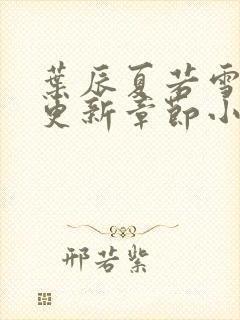 葉辰夏若雪
更新章節小
邢若紫